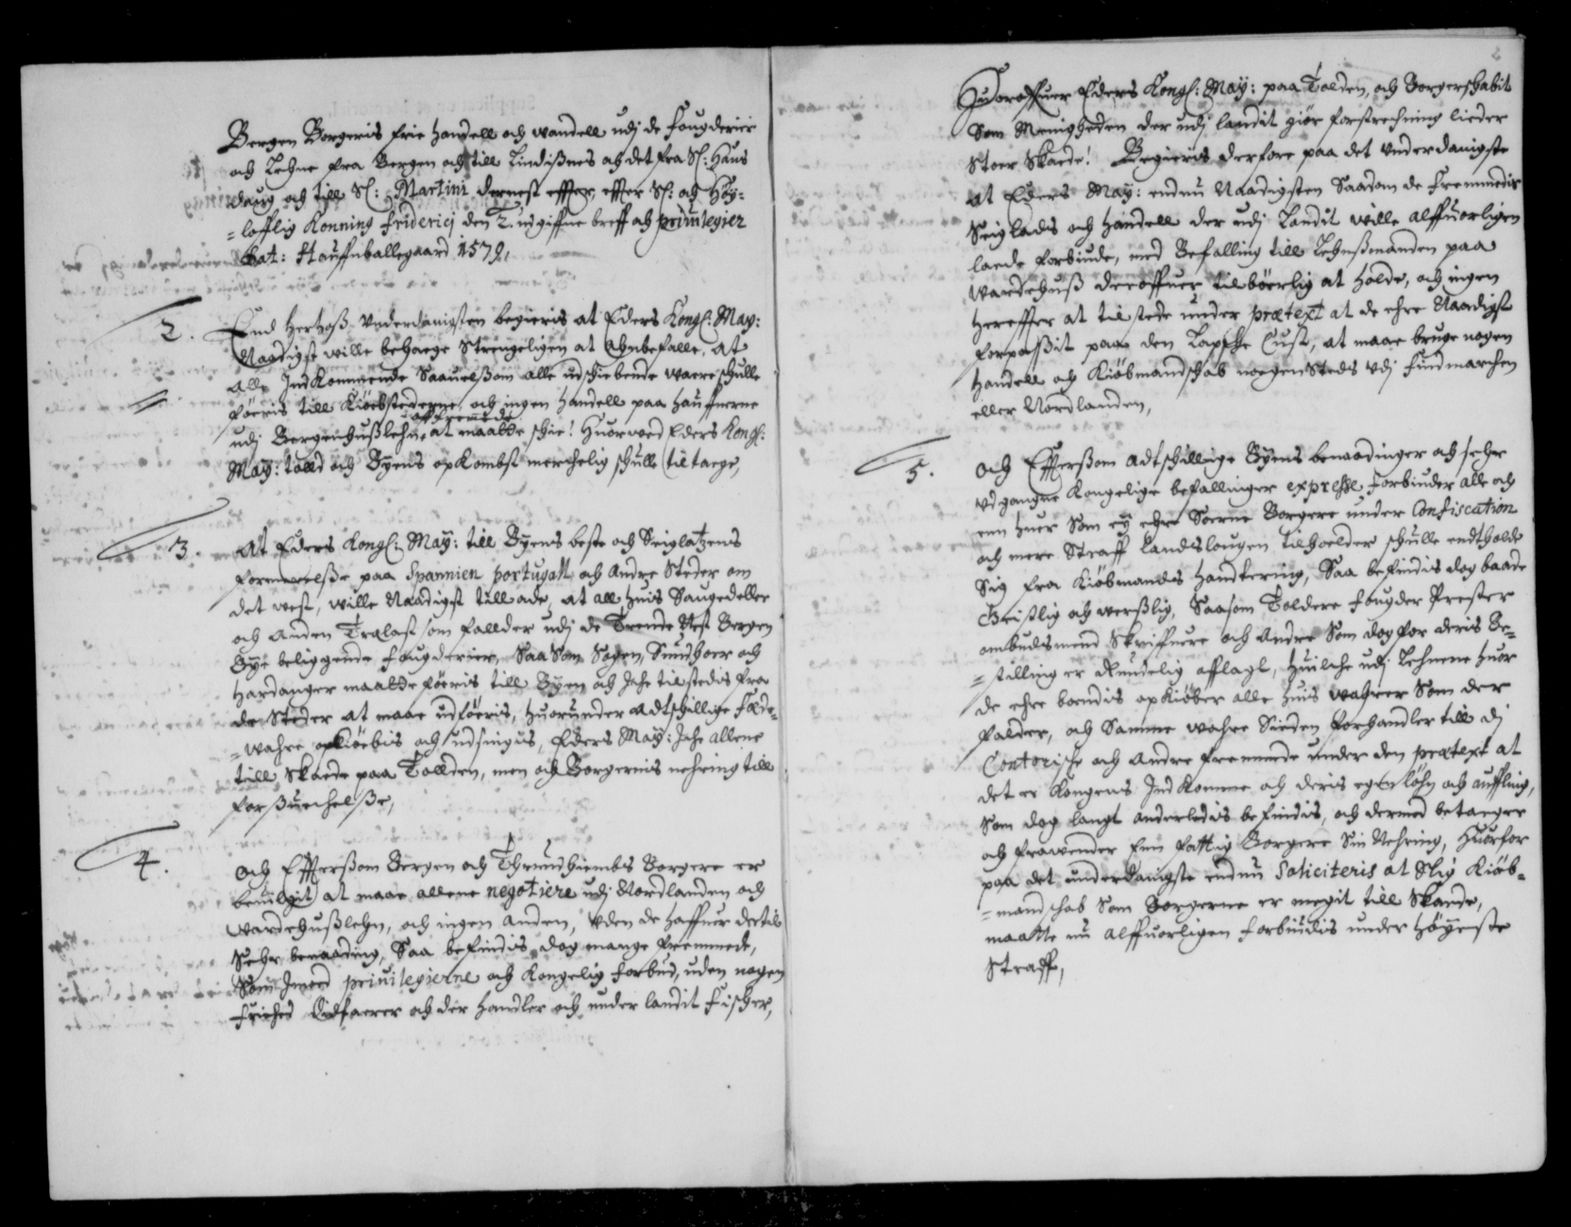 Bergen Borgeris frie handell och wandell udj de Fougderier
och Lehne fra Bergen och till Lindißnes och det fra St: Hans
daug och till St: Martini dernest effter, effter Sl: och Høy=
=lofflig Konning Friderici den 2. udgiffne breff och privilegier
Dat: Hauffnballegaard 1579,
2. End hertoß Underdanigsten begieris at Eders Kongl: May:
Naadigst wille behaege Strengeligen at Anbefalle, at
alle Indkommende Saauelßom alle udschibende waere schulle
føeris till Kiøebstederne, och ingen handell paa hauffnerne
udj Bergenhußlehn, at maatte schie! Huorved Eders Kongl:
May: told och Byens opkombst merchelig schulle tiltaege,
3. At Eders Kongl: May: till Byens beste och Seiglatzens
formeerelße paa Spannien portugall och Andre Steder om
det west, wille Naadigst tillade, at all huis Saugedeller
och Anden Tralast som falder udj de Trende Nest Bergen
Bye beliggende Fougderier, Saa Som Sogen, Sundhoer och
Hardanger maatte føeris till Byen och Iche tilstedis fra
de Steder at maae udføeris, huorunder Adtschillige Fæde=
=wahre opkiøbis och udsnigis, Eders May: Iche allene
till Skaede paa Tollden, men och Borgernis nehring till
forßuechelße,
4. Och Effterßom Bergen och Thrundhiembs Borgere er
beuilgit at maae allene negotiere udj Nordlanden och
Wardehußlehn, och ingen Anden, uden de haffuer dertil
Sehr benaading, Saa befindis dog mange fremmede,
Som Imod privilegierne och Kongelig forbud, uden nogen
friehed Didfaerer och der handler och under landit Fischer,
Huoroffuer Eders Kongl: May: paa Tolden, och Borgerschabit
Som Menigheden der udj landit giør forstrechning lieder
Stoer Skaede! Begieris derfore paa det underdanigste
at Eders May: endnu Naadigsten Saadan de Fremmedis
Seigladts och handell der udj Landit wille alffuorligen
laede forbiude, med Befalling till Lehnßmanden paa
Wardehuß deroffuer tilbørlig at holde, och ingen
hereffter at tilstede under prætext at de ehre Naadigst
forpaßit paa den Lapsche Cust, at maae bruge nogen
handell och Kiøbmandschab noegensteds udj Findmarchen
eller Nordlanden,
5. Och Effterßom Adtschillige Byens benaadinger och sehr
udgangne Kongelige befallinger expresse forbiuder alle och
enn huer Som ey ehre Soerne Borgere under Confiscation
och mere Straff landslougen tilholder schulle endtholde
Sig fra Kiøbmandts handtering, Saa befindis dog baade
Geistlig och werßlig, Saasom Toldere Fougder Prester
ombudsmend Skriffuere och Andre Som dog for deris Be=
=stilling er Andelig afflagt, huilche udj Lehnene huor
de ehre boendis opkiøber alle huis wahrer Som der
falder, och Samme wahre Sieden forhandler till di
Contorische och Andre fremmede under den prætext at
det er Kongens Indkomme och deris egen løhn och auffling,
Som dog langt anderledis befindis, och dermed betaeger
och frawender Enn fattig Borgere Sin Nehring, Huorfor
paa det underdanigste endnu Soliciteris at Slig Kiøb=
=mandschab Som Borgerne er megit till Skande,
maatte nu alffuorligen forbiudis under høyeste
Straff,